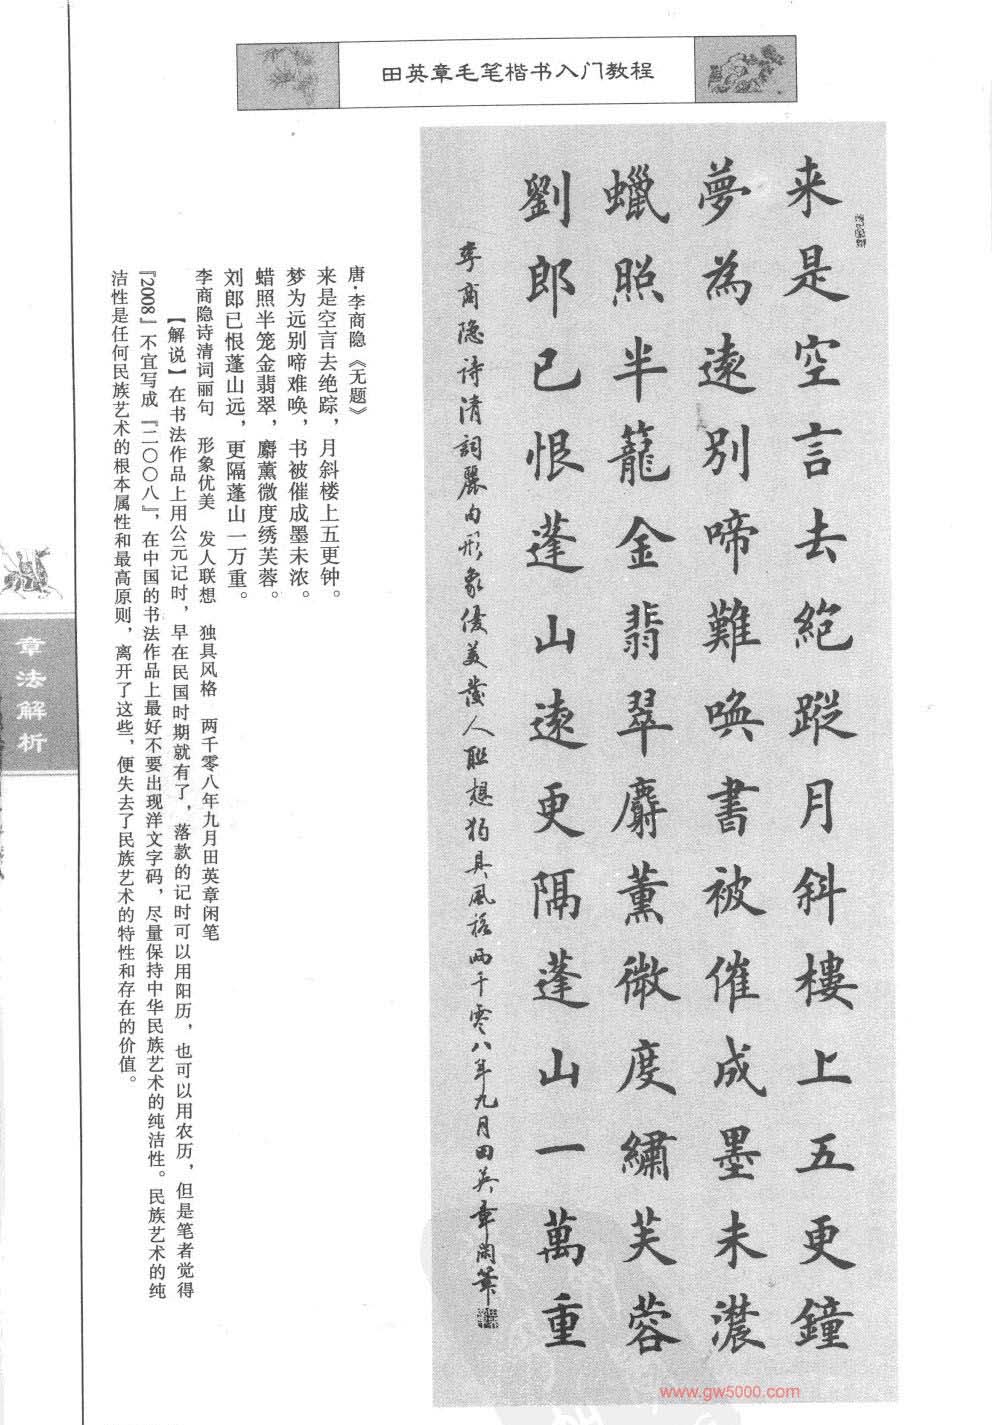 田英章毛笔楷书入门教程
来是空言去絶蹤月斜樓上五更鐘
夢為遠别啼難喚書被催成墨未濃
蠟照半籠金翡翠麝薰微度繡芙蓉
劉郎已恨蓬山遠更隔蓬山一萬重
李商隐诗清詞麗句形象优美發人联想独具風格两千零八年九月田英章闲筆
唐·李商隐《无题》
来是空言去绝踪，月斜楼上五更钟。
梦为远别啼难唤，书被催成墨未浓。
蜡照半笼金翡翠，麝薰微度绣芙蓉。
刘郎已恨蓬山远，更隔蓬山一万重。
李商隐诗清词丽句　形象优美　发人联想　独具风格　两千零八年九月田英章闲笔
【解说】在书法作品上用公元记时，早在民国时期就有了，落款的记时可以用阳历，也可以用农历，但是笔者觉得
『2008』不宜写成『二〇〇八』，在中国的书法作品上最好不要出现洋文字码，尽量保持中华民族艺术的纯洁性。民族艺术的纯
洁性是任何民族艺术的根本属性和最高原则，离开了这些，便失去了民族艺术的特性和存在的价值。
章法解析
www.gw5000.com